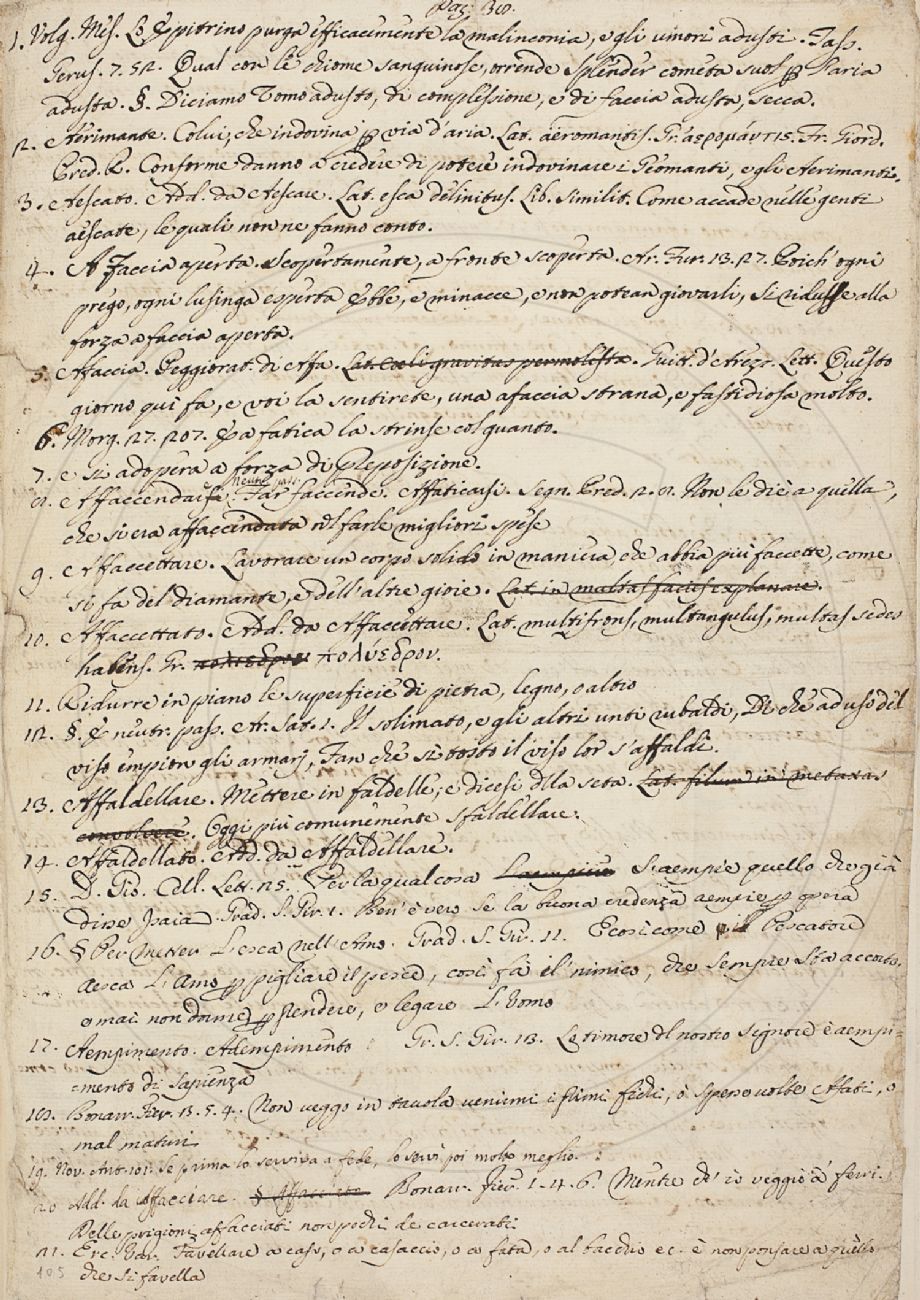 Pag. 30.
1. Volg. Mes. Lo Eppitrino purga efficacemente la malinconia, e gli umori adusti. Tass.
Gerus. 7. 52. Qual con le chiome sanguinose, orrende Splender cometa suol p Karia
adusta. §. Diciamo Uomo adusto, di complessione, e di faccia adusta, secca.
2. Aerimante. Colui, che indovina p via d'aria. Lat. aeromantis. Gr. ἀερομάντις. Fr. Giord.
Pred. R. Conforme danno a credere di potere indovinare i Geomanti, e gli Aerimanti.
3. Aescato. Add. da Aescare. Lat. esca delinitus. Lib. Similit. Come accade nelle genti
aescate, le quali non ne fanno conto.
4. A faccia aperta. Scopertamente, a fronte scoperta. Ar. Fur. 13. 27. Poich' ogni
prego, ogni lusinga esperta Ebbe, e minacce, e non potean giovarli, Si ridusse alla
forza a faccia aperta.
5. Afaccia. Peggiorat. di Afa. Lat. Coeli gravitas permolesta. Guitt. d'Arezz. Lett. Questo
giorno qui fa, e voi la sentirete, una afaccia strana, e fastidiosa molto.
6. Morg. 27. 207. E a fatica la strinse col quanto.
7. e si adopera a forza di Preposizione.
8. Affaccendarsi. Neutr. pass. Far faccende. Affaticarsi. Segn. Pred. 2. 8. Non le diè a quella,
che si era affaccendata nel farle migliori spese
9. Affaccettare. Lavorare un corpo solido in maniera, che abbia più faccette, come
si fa del diamante, e dell'altre gioie. Lat. in multas facies explanare.
10. Affaccettato. Add. da Affaccettare. Lat. multifrons, multangulus, multas sedes
habens. Gr. πολύεδρον.
11. Ridurre in piano le superficie di pietra, legno, o altro
12. §. E neutr. pass. Ar. Sat. 1. Il solimato, e gli altri unti rubaldi, Di che ad uso del
viso empion gli armarj, Fan che sì tosto il viso lor s'affaldi.
13. Affaldellare. Mettere in faldelle; e dicesi dlla seta. Lat. filum in metaxas
convolvere. Oggi più comunemente sfaldellare.
14. Affaldellato. Add. da Affaldellare.
15. D. Gio. Cell. Lett. 25. Per la qual cosa s'aempie quello che già
disse Isaia. Trad. S. Gir. 1. Ben' è vero se la buona credenza aempie p opera
16. § Per metter L'esca nell'Amo. Trad. S. Gir. 11. E così come il Pescatore
aesca L'Amo p pigliare il pesce, così fa il nimico, che sempre sta accorto,
e mai non dorme p prendere, e legare L'Uomo
17. Aempimento. Adempimento Gr. S. Gir. 13. Lo timore dl nostro Signore è aempi-
=mento di Sapienza
18. Bonarr. Fier. 3. 5. 4. Non veggo in tavola venirmi i fiumi fichi, o spesso volte Afati, o
mal maturi.
19. Nov. Ant. 101. Se prima lo serviva a fede, lo servì poi molto meglio.
20 Add. da Affacciare. § Affacciato Bonarr. Fier. 1. 4. 6. Mentre ch' io veggio a' ferri
Delle prigioni affacciati non pochi de carcerati
21. Erc. Var. Favellare a caso, o a casaccio, o a fata, o al bacchio ec. è non pensare a quello
che si favella
105